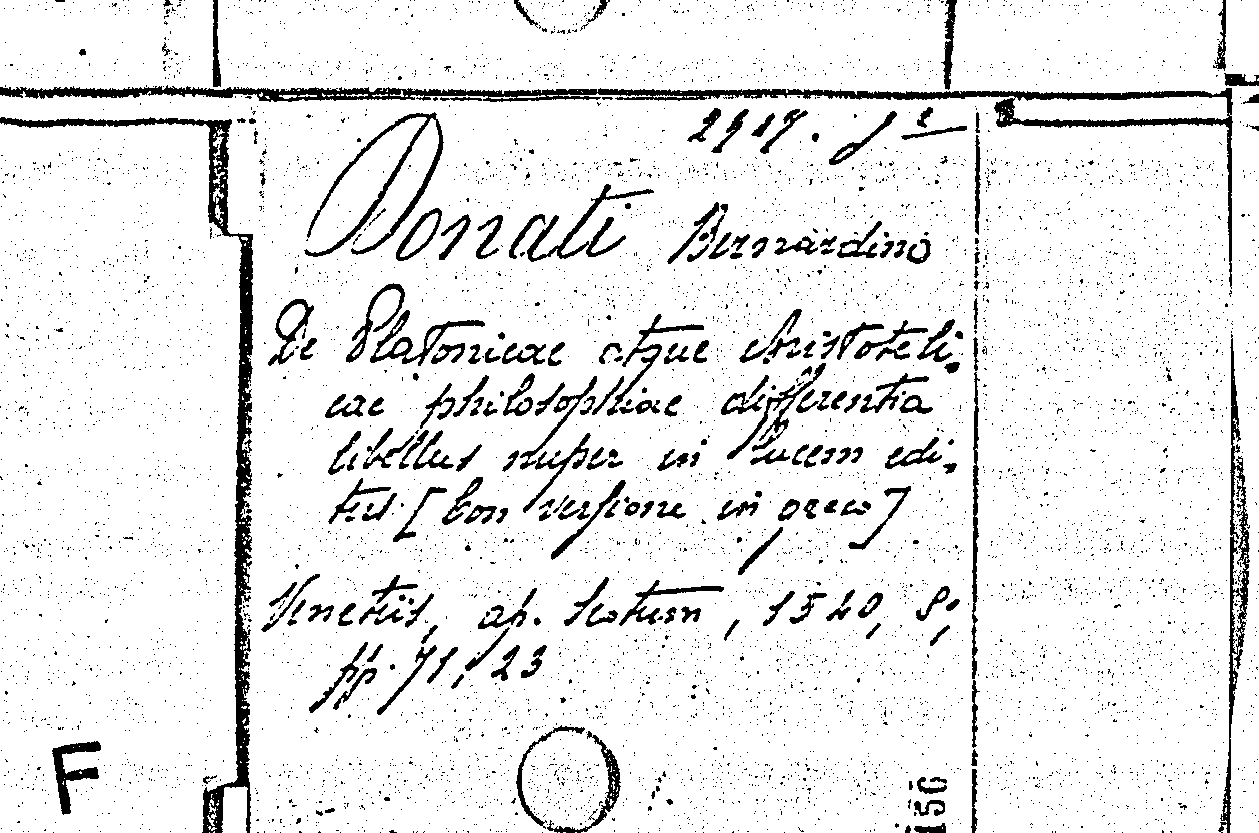 Donati Bernardino
De Platonicae atque Aristoteli-
cae philosophiae differentia
libellus nuper in lucem edi-
tus. [Con versione in greco]
Venetiis, ap. Scotum, 1540, 8,
pp. 71, 23
F
150